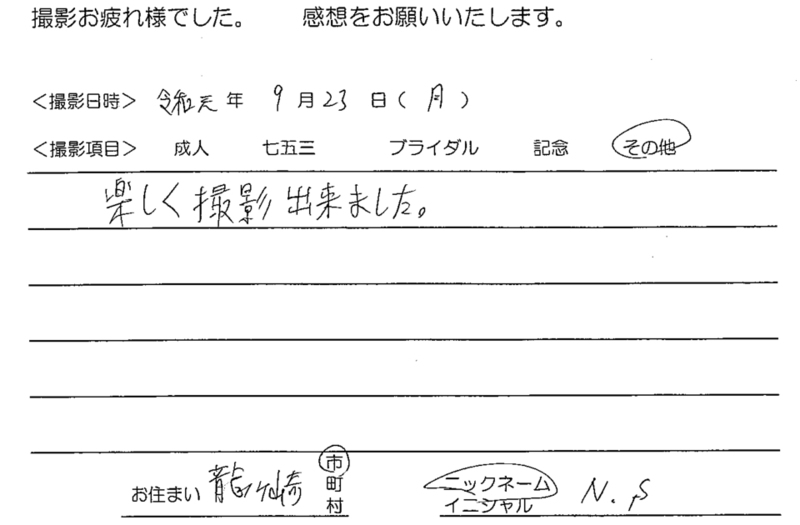 撮影お疲れ様でした。 感想をお願いいたします。
＜撮影日時＞ 令和元年 9月23日（月）
＜撮影項目＞ 成人 七五三 ブライダル 記念 その他
楽しく撮影出来ました。
お住まい 龍ヶ崎 市町村 ニックネーム イニシャル N.S